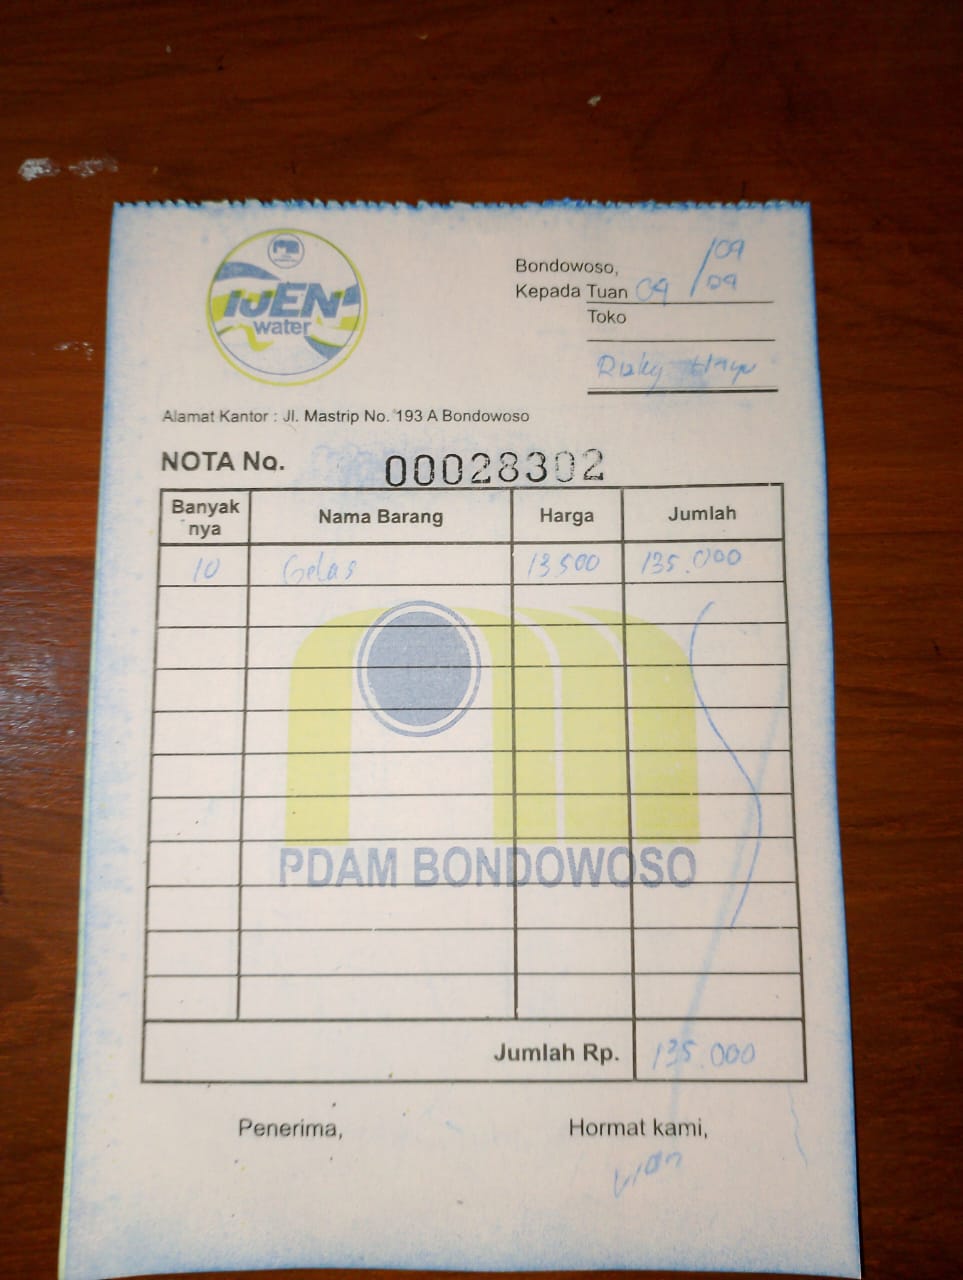 IJEN
water
Bondowoso, 09/09
Kepada Tuan 09
Toko
Rizky
Alamat Kantor : Jl. Mastrip No. 193 A Bondowoso
NOTA No. 00028302
Banyak nya Nama Barang Harga Jumlah
10 Gelas 13500 135.000
PDAM BONDOWOSO
Jumlah Rp. 135.000
Penerima, Hormat kami,